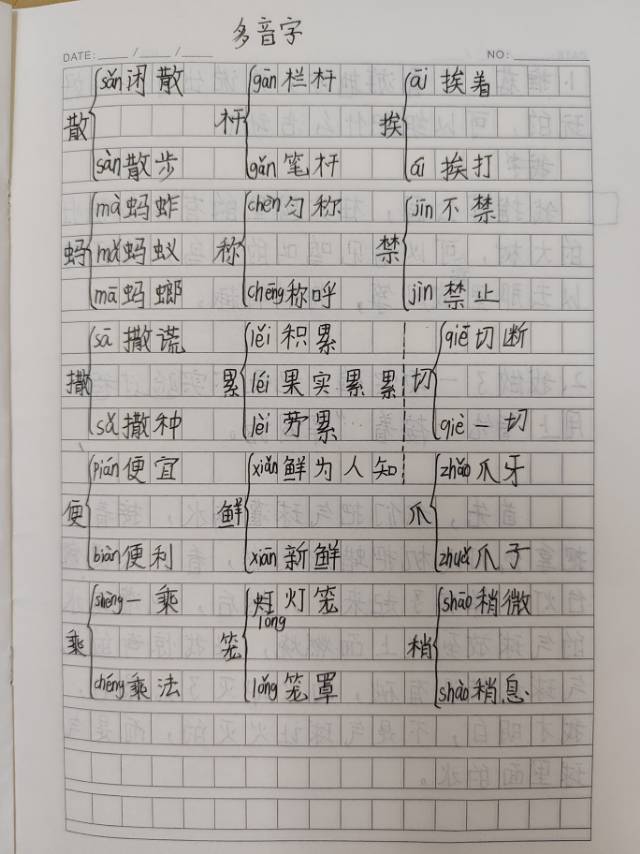 多音字
DATE: / / NO:
sǎn 闲散 gān 栏杆 āi 挨着
散 杆 挨
sàn 散步 gǎn 笔杆 ái 挨打
mà 蚂蚱 chèn 匀称 jīn 不禁
蚂 mǎ 蚂蚁 称 禁
mā 蚂螂 chēng 称呼 jìn 禁止
sā 撒谎 lěi 积累 qiē 切断
撒 累 léi 果实累累 切
sǎ 撒种 lèi 劳累 qiè 一切
pián 便宜 xiǎn 鲜为人知 zhǎo 爪牙
便 鲜 爪
biàn 便利 xiān 新鲜 zhuǎ 爪子
shèng 一乘 lóng 灯笼 shāo 稍微
乘 笼 稍
chéng 乘法 lǒng 笼罩 shào 稍息